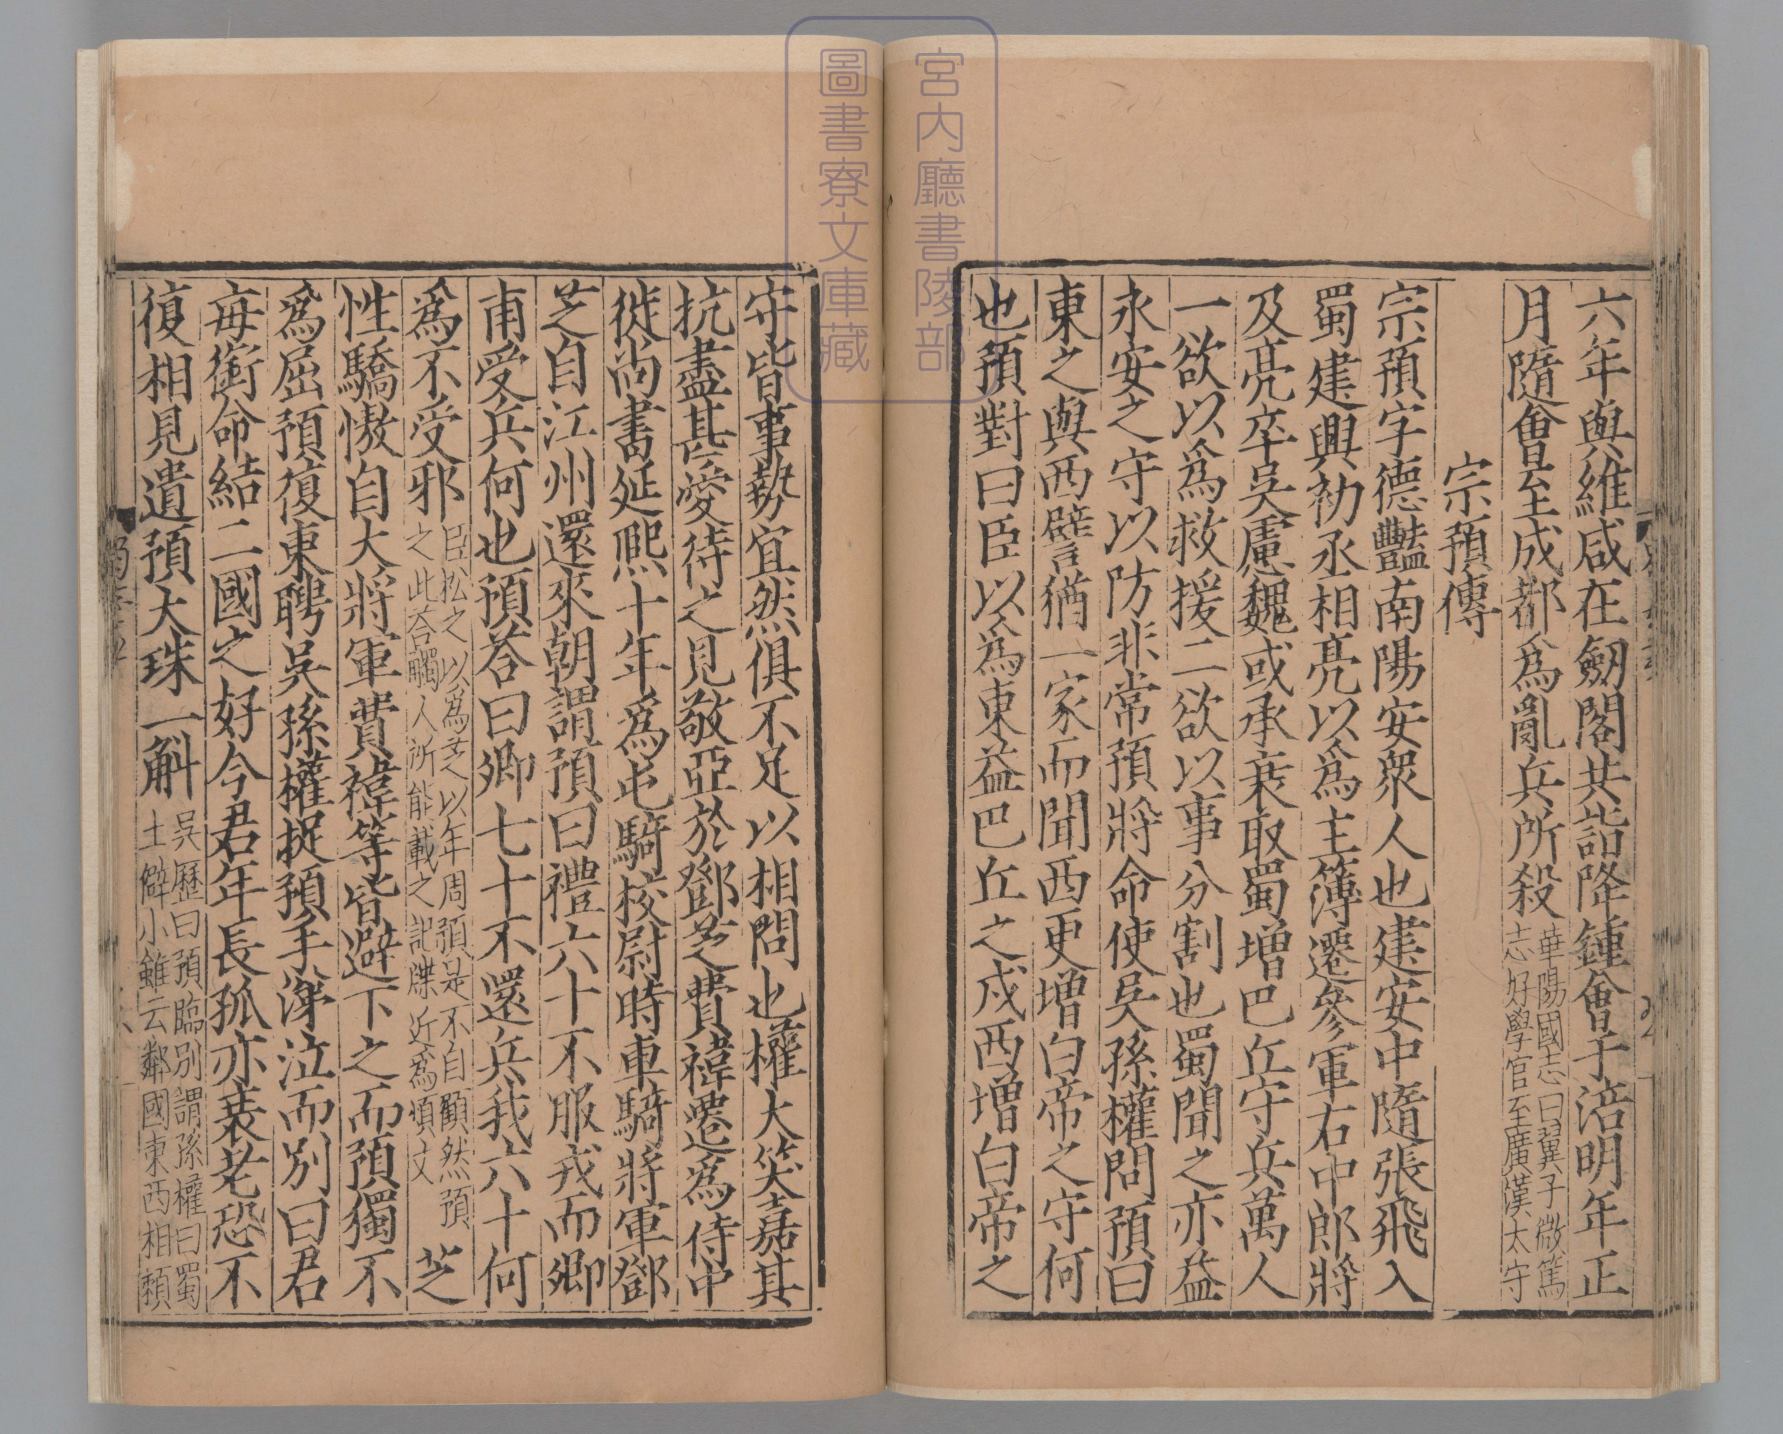 宮内廳書陵部
圖書寮文庫藏
六年與維咸在劒閣共詣降鍾會于涪明年正
月隨會至成都爲亂兵所殺華陽國志曰翼子微篤
志好學官至廣漢太守
宗預傳
宗預字德豔南陽安衆人也建安中隨張飛入
蜀建興初丞相亮以爲主簿遷參軍右中郎將
及亮卒吳慮魏或承衰取蜀增巴丘守兵萬人
一欲以爲救援二欲以事分割也蜀聞之亦益
永安之守以防非常預將命使吳孫權問預曰
東之與西譬猶一家而聞西更增白帝之守何
也預對曰臣以爲東益巴丘之戍西增白帝之
守皆事勢宜然俱不足以相問也權大笑嘉其
抗盡甚愛待之見敬亞於鄧芝費禕遷爲侍中
徙尚書延熙十年爲屯騎校尉時車騎將軍鄧
芝自江州還來朝謂預曰禮六十不服戎而卿
甫受兵何也預荅曰卿七十不還兵我六十何
爲不受邪臣松之以爲芝以年周預是不自顧然預
之此荅觸人所能載之記牒近爲煩文芝
性驕慠自大將軍費禕等皆避下之而預獨不
爲屈預復東聘吳孫權捉預手涕泣而別曰君
每銜命結二國之好今君年長孤亦衰老恐不
復相見遺預大珠一斛吳歷曰預臨別謂孫權曰蜀
土僻小雖云鄰國東西相頼